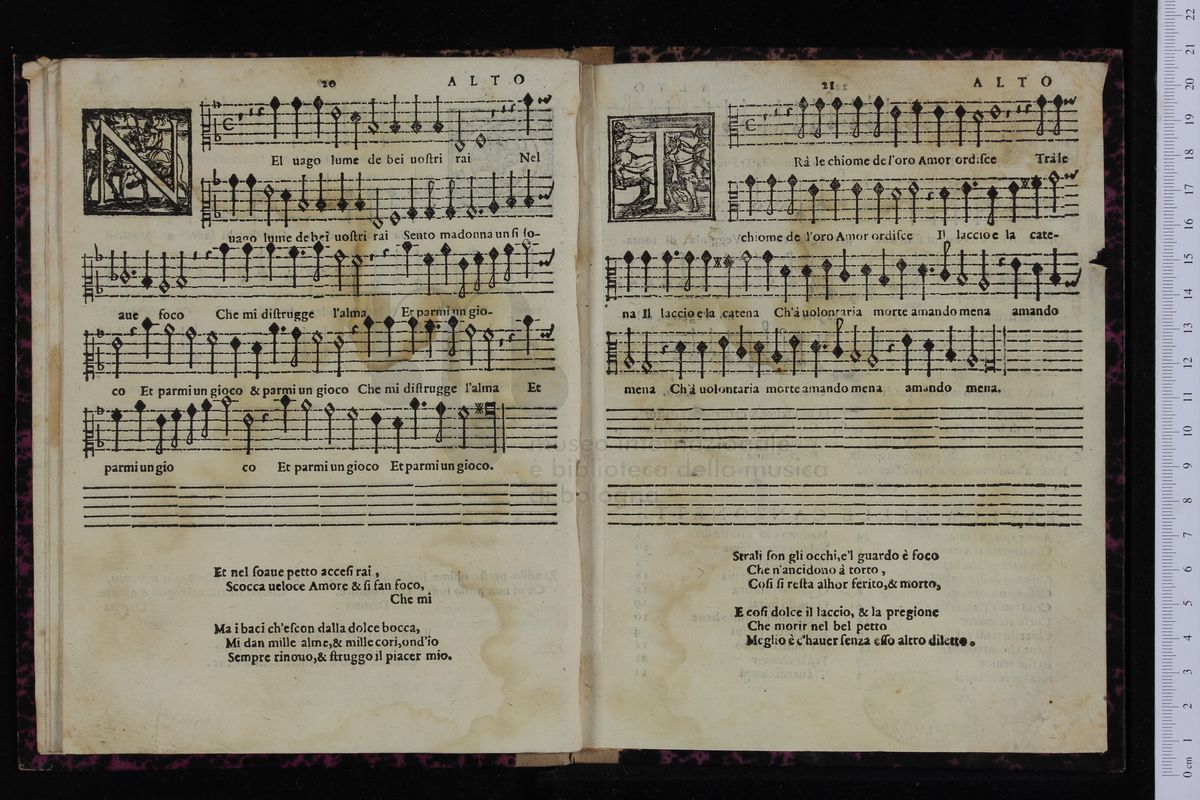 20
ALTO
El uago lume de bei uoſtri rai Nel
uago lume de bei uoſtri rai Sento madonna un ſi ſo-
aue foco Che mi diſtrugge l'alma Et parmi un gio-
co Et parmi un gioco & parmi un gioco Che mi diſtrugge l'alma Et
parmi un gio co Et parmi un gioco Et parmi un gioco.
Et nel ſoaue petto acceſi rai,
Scocca ueloce Amore & ſi fan foco,
Che mi
Ma i baci ch'eſcon dalla dolce bocca,
Mi dan mille alme,& mille cori,ond'io
Sempre rinouo,& ſtruggo il piacer mio.
21
ALTO
T
Rà le chiome de l'oro Amor ordiſce Trà le
chiome de l'oro Amor ordiſce Il laccio e la cate-
na Il laccio e la catena Ch'à uolontaria morte amando mena amando
mena Ch'à uolontaria morte amando mena amando mena.
Strali ſon gli occhi,e'l guardo è foco
Che n'ancidono à torto,
Coſi ſi reſta alhor ferito,& morto,
E coſi dolce il laccio, & la pregione
Che morir nel bel petto
Meglio è c'hauer ſenza eſſo altro diletto.
museo internazionale
e biblioteca della musica
di bologna